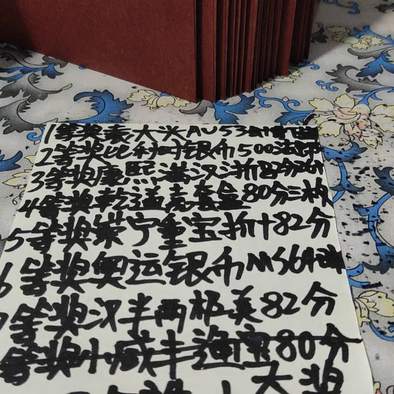 1等奖袁大头AU53
2等奖比利时银币500法郎
3等奖康熙满汉浙82分2枚
4等奖乾通壳套盒80分三枚
5等奖崇宁重宝折十82分
6等奖奥运银币MS6
等奖汉半两极美82分
等奖咸丰通宝80分
大奖